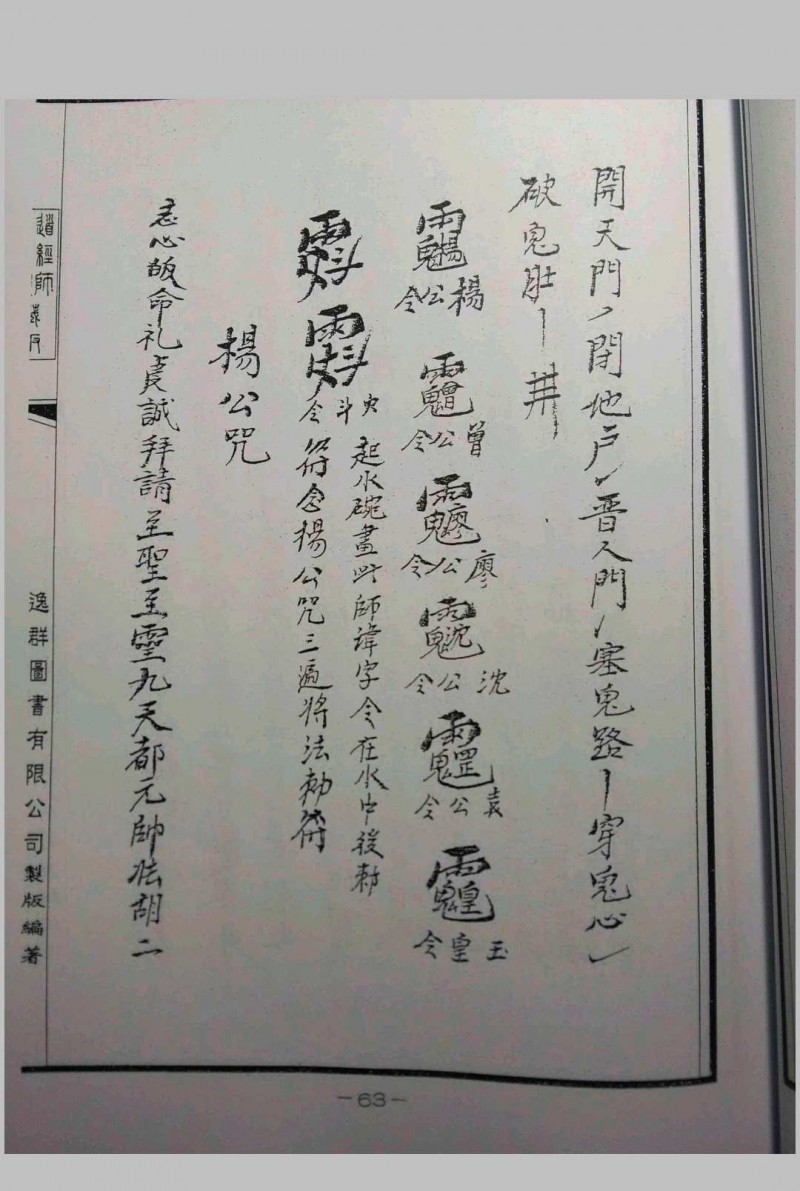 開天門丿閉地戶乀晋人門丿塞鬼路丨穿鬼心乀
破鬼肚丨井
楊公令
曾公令
廖公令
沈公令
袁公令
玉皇令
火斗令
起水碗畫此師諱字令在水中後勅
符念楊公咒三遍將法勅符
楊公咒
志心皈命礼虔誠拜請至聖至靈九天都元帥张胡二
逸群圖書有限公司製版編著
-63-